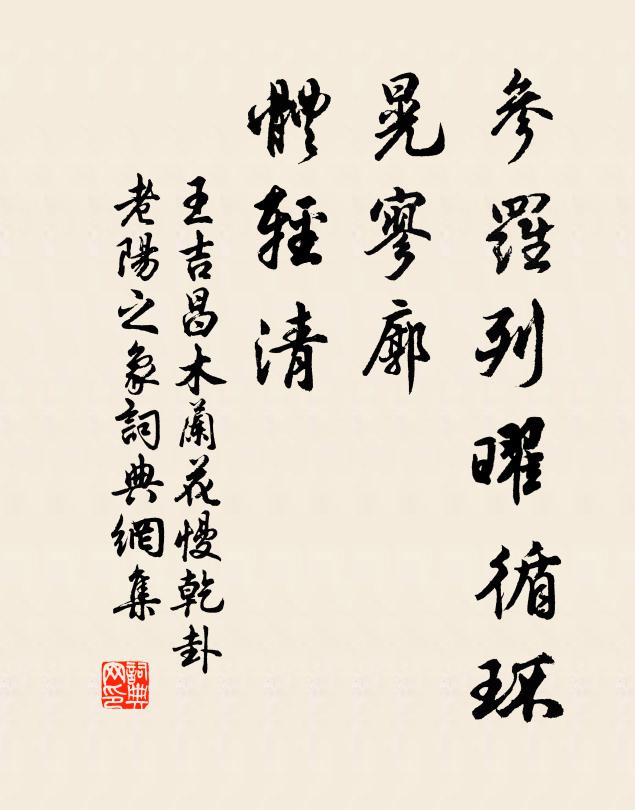 參羅列曜循环
晃寥廓
體輕清
王吉昌木蘭花慢乾卦
老陽之象詞典網集
詞典
网印